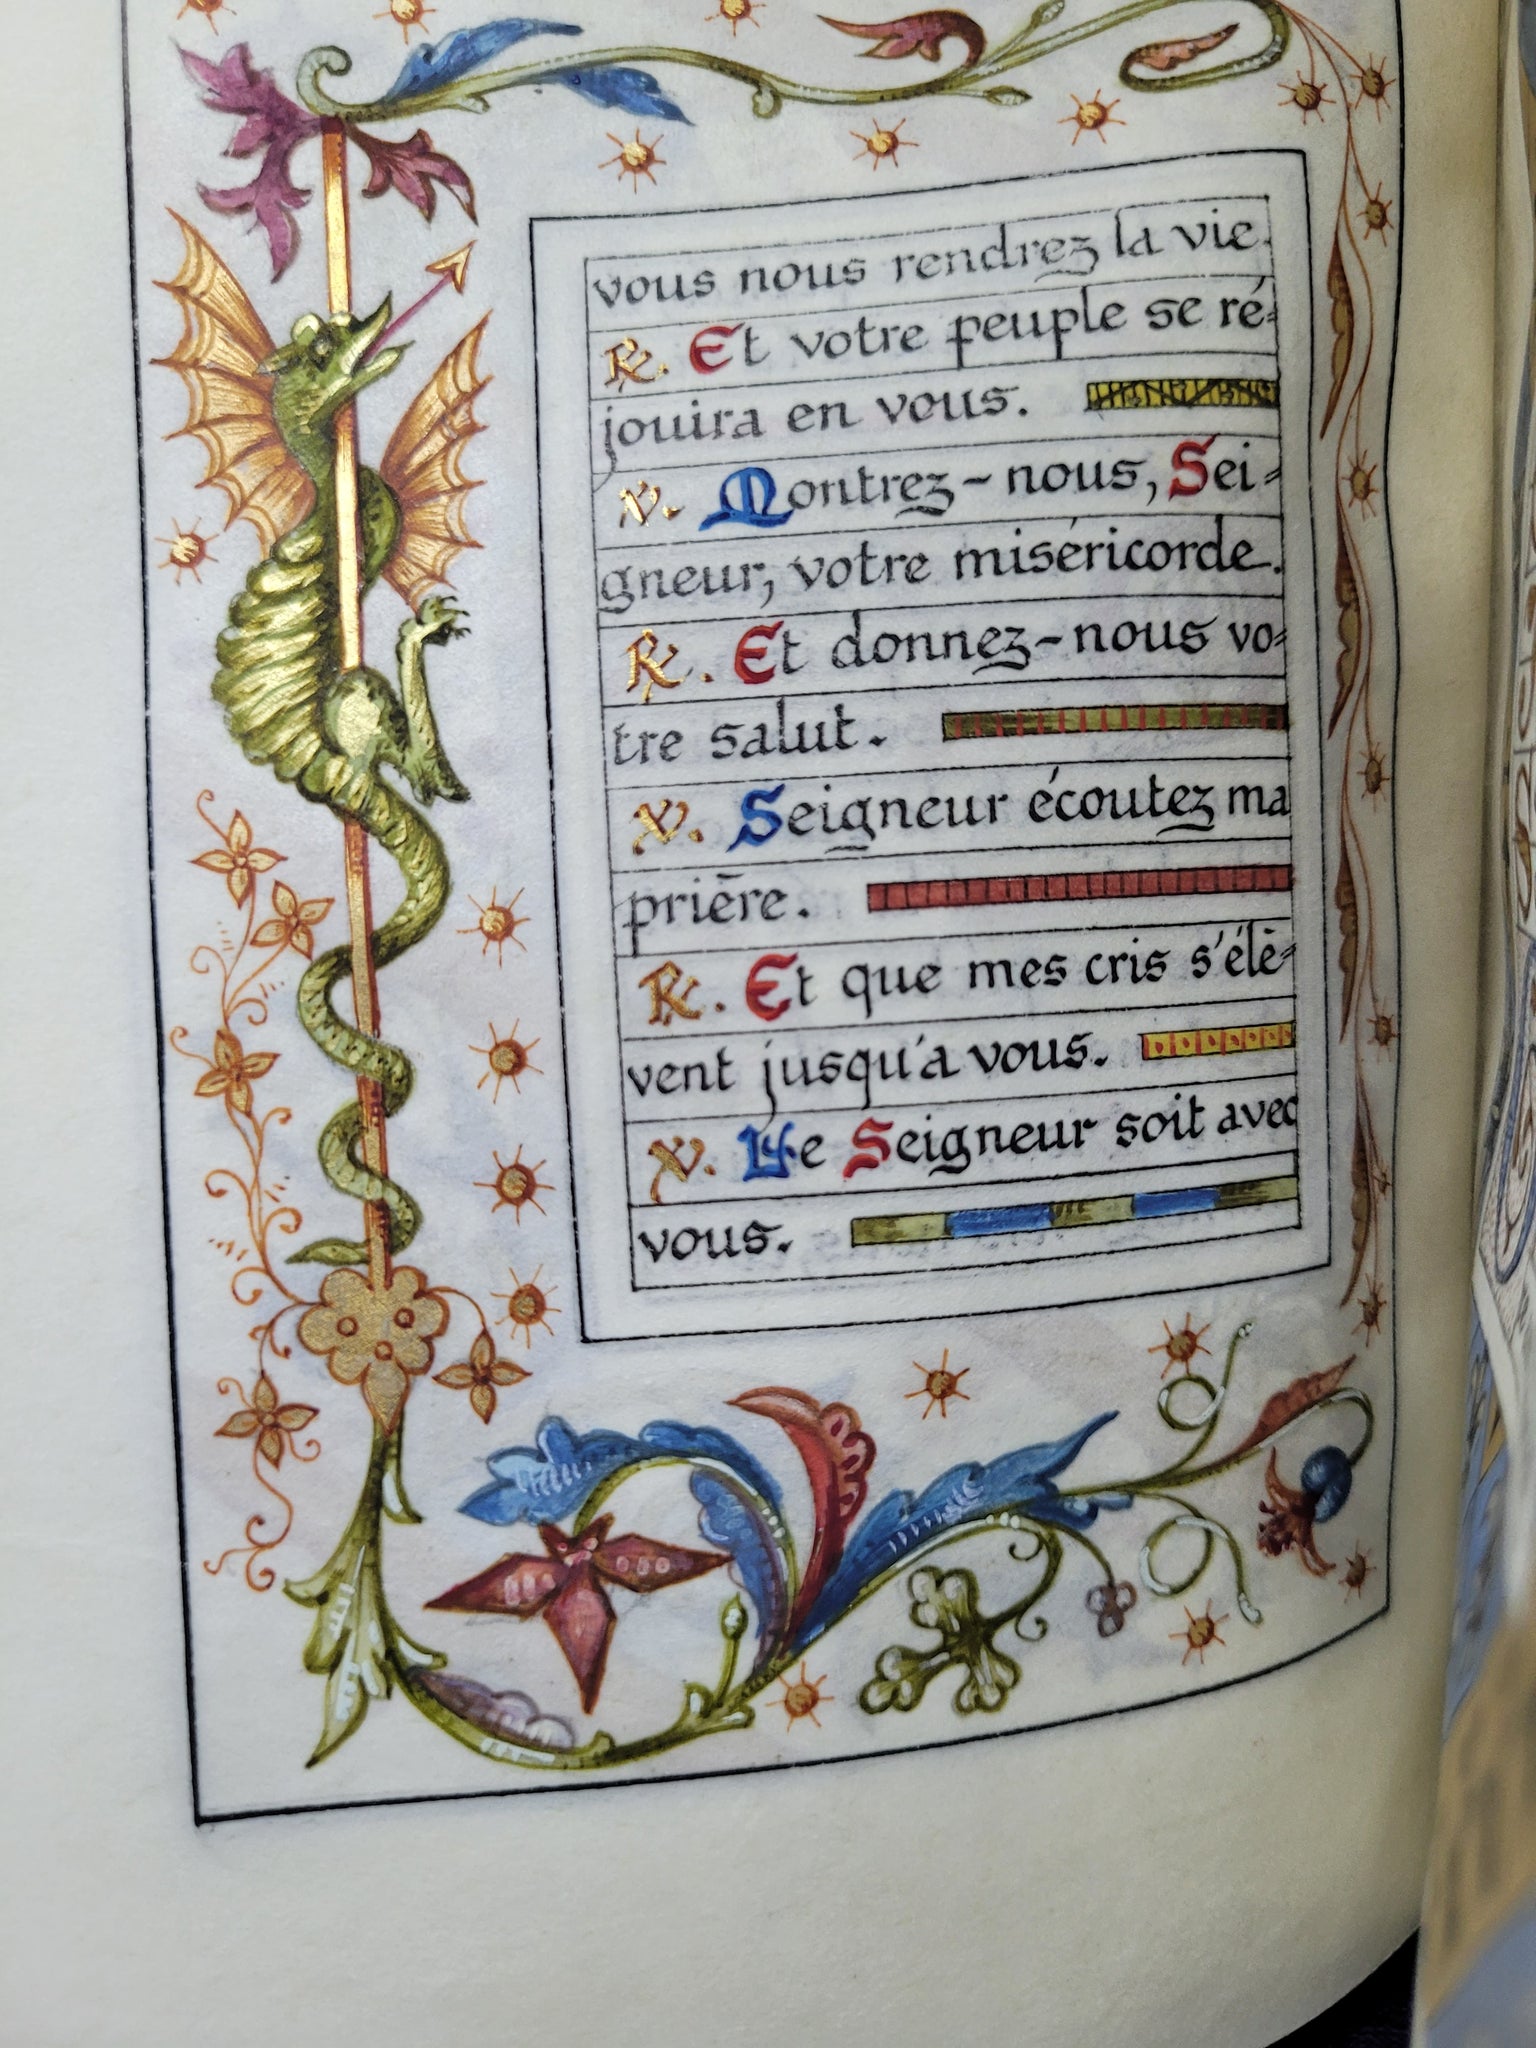 vous nous rendrez la vie.
℟. Et votre peuple se ré=
jouira en vous.
℣. Montrez-nous, Sei=
gneur, votre miséricorde.
℟. Et donnez-nous vo=
tre salut.
℣. Seigneur écoutez ma
prière.
℟. Et que mes cris s'élè=
vent jusqu'à vous.
℣. Le Seigneur soit avec
vous.